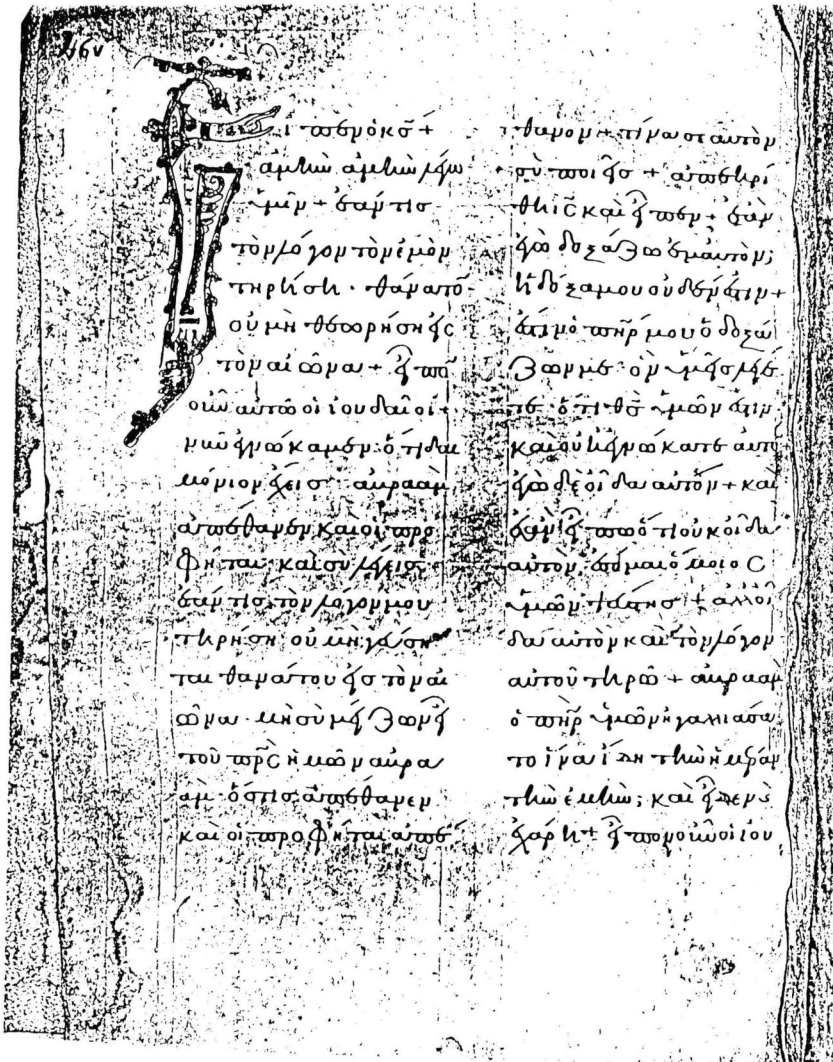 46v
Εἶπεν ὁ κς +
ἀμὴν ἀμὴν λέγω
ὑμῖν + ἐάν τις
τὸν λόγον τὸν ἐμὸν
τηρήσῃ · θάνατο
οὐ μὴ θεωρήσῃ εἰς
τὸν αἰῶνα + εἶπο
οὖν αὐτῶ οἱ ἰουδαῖοι +
νῦν ἐγνώκαμεν ὅτι δαι
μόνιον ἔχεις ἀβραὰμ
ἀπέθανεν καὶ οἱ προ
φῆται καὶ σὺ λέγεις
ἐάν τις τὸν λόγον μου
τηρήσῃ οὐ μὴ γεύση
ται θανάτου εἰς τὸν αἰ
ῶνα · μὴ σὺ μείζων εἶ
τοῦ πρς ἡμῶν ἀβρα
ὰμ · ὅστις ἀπέθανεν
καὶ οἱ προφῆται ἀπέ
θανον + τίνα σεαυτὸν
σὺ ποιεῖς + ἀπεκρί
θη ις καὶ εἶπεν + ἐὰν
ἐγὼ δοξάζω ἐμαυτὸν;
ἡ δόξα μου οὐδέν ἐστιν +
ἔστιν ὁ πηρ μου ὁ δοξά
ζων με · ὃν ὑμεῖς λέγε
τε ὅτι θς ὑμῶν ἐστιν
καὶ οὐκ ἐγνώκατε αὐτὸ
ἐγὼ δὲ οἶδα αὐτόν + καὶ
ἐὰν εἴπω ὅτι οὐκ οἶδα
αὐτὸν, ἔσομαι ὅμοιος
ὑμῶν ψεύστης + ἀλλ' οἶ
δα αὐτὸν καὶ τὸν λόγον
αὐτοῦ τηρῶ + ἀβραὰμ
ὁ πηρ ὑμῶν ἠγαλλιάσα
το ἵνα ἴδη τὴν ἡμέραν
τὴν ἐμήν; καὶ εἶδεν καὶ
ἐχάρη + εἶπον οὖν οἱ ἰου